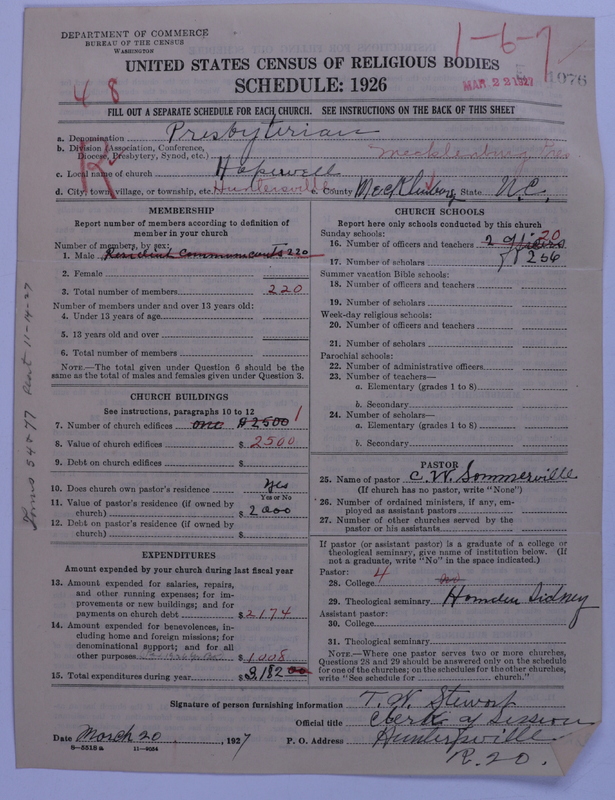 DEPARTMENT OF COMMERCE
BUREAU OF THE CENSUS
WASHINGTON
1-6-7
UNITED STATES CENSUS OF RELIGIOUS BODIES
SCHEDULE: 1926
MAR 22 1927
1976
48
FILL OUT A SEPARATE SCHEDULE FOR EACH CHURCH. SEE INSTRUCTIONS ON THE BACK OF THIS SHEET
a. Denomination Presbyterian
b. Division (Association, Conference, Diocese, Presbytery, Synod, etc.) Mecklenburg Pres
c. Local name of church Hopewell
d. City, town, village, or township, etc. Huntersville e. County Mecklenburg State N.C.
MEMBERSHIP
Report number of members according to definition of member in your church
Number of members, by sex:
1. Male Resident Communicants 220
2. Female
3. Total number of members 220
Number of members under and over 13 years old:
4. Under 13 years of age
5. 13 years old and over
6. Total number of members
NOTE.—The total given under Question 6 should be the same as the total of males and females given under Question 3.
CHURCH BUILDINGS
See instructions, paragraphs 10 to 12
7. Number of church edifices one $2500 1
8. Value of church edifices $ 2500
9. Debt on church edifices $
10. Does church own pastor's residence yes
Yes or No
11. Value of pastor's residence (if owned by church) $ 2000
12. Debt on pastor's residence (if owned by church) $
EXPENDITURES
Amount expended by your church during last fiscal year
13. Amount expended for salaries, repairs, and other running expenses; for improvements or new buildings; and for payments on church debt $ 2174
14. Amount expended for benevolences, including home and foreign missions; for denominational support; and for all other purposes $ 1008
15. Total expenditures during year $ 3,182 00
CHURCH SCHOOLS
Report here only schools conducted by this church
Sunday schools:
16. Number of officers and teachers 20
17. Number of scholars 256
Summer vacation Bible schools:
18. Number of officers and teachers
19. Number of scholars
Week-day religious schools:
20. Number of officers and teachers
21. Number of scholars
Parochial schools:
22. Number of administrative officers
23. Number of teachers—
a. Elementary (grades 1 to 8)
b. Secondary
24. Number of scholars—
a. Elementary (grades 1 to 8)
b. Secondary
PASTOR
25. Name of pastor C. W. Sommerville
(If church has no pastor, write "None")
26. Number of ordained ministers, if any, employed as assistant pastors
27. Number of other churches served by the pastor or his assistants
If pastor (or assistant pastor) is a graduate of a college or theological seminary, give name of institution below. (If not a graduate, write "No" in the space indicated.)
Pastor:
28. College 4
29. Theological seminary Hamden Sidney
Assistant pastor:
30. College
31. Theological seminary
NOTE.—Where one pastor serves two or more churches, Questions 28 and 29 should be answered only on the schedule for one of the churches; on the schedules for the other churches, write "See schedule for church."
Signature of person furnishing information T. W. Stewart
Official title Clerk of Session
Date March 20, 1927 P. O. Address Huntersville
R. 20.
8-5518 a 11-9034